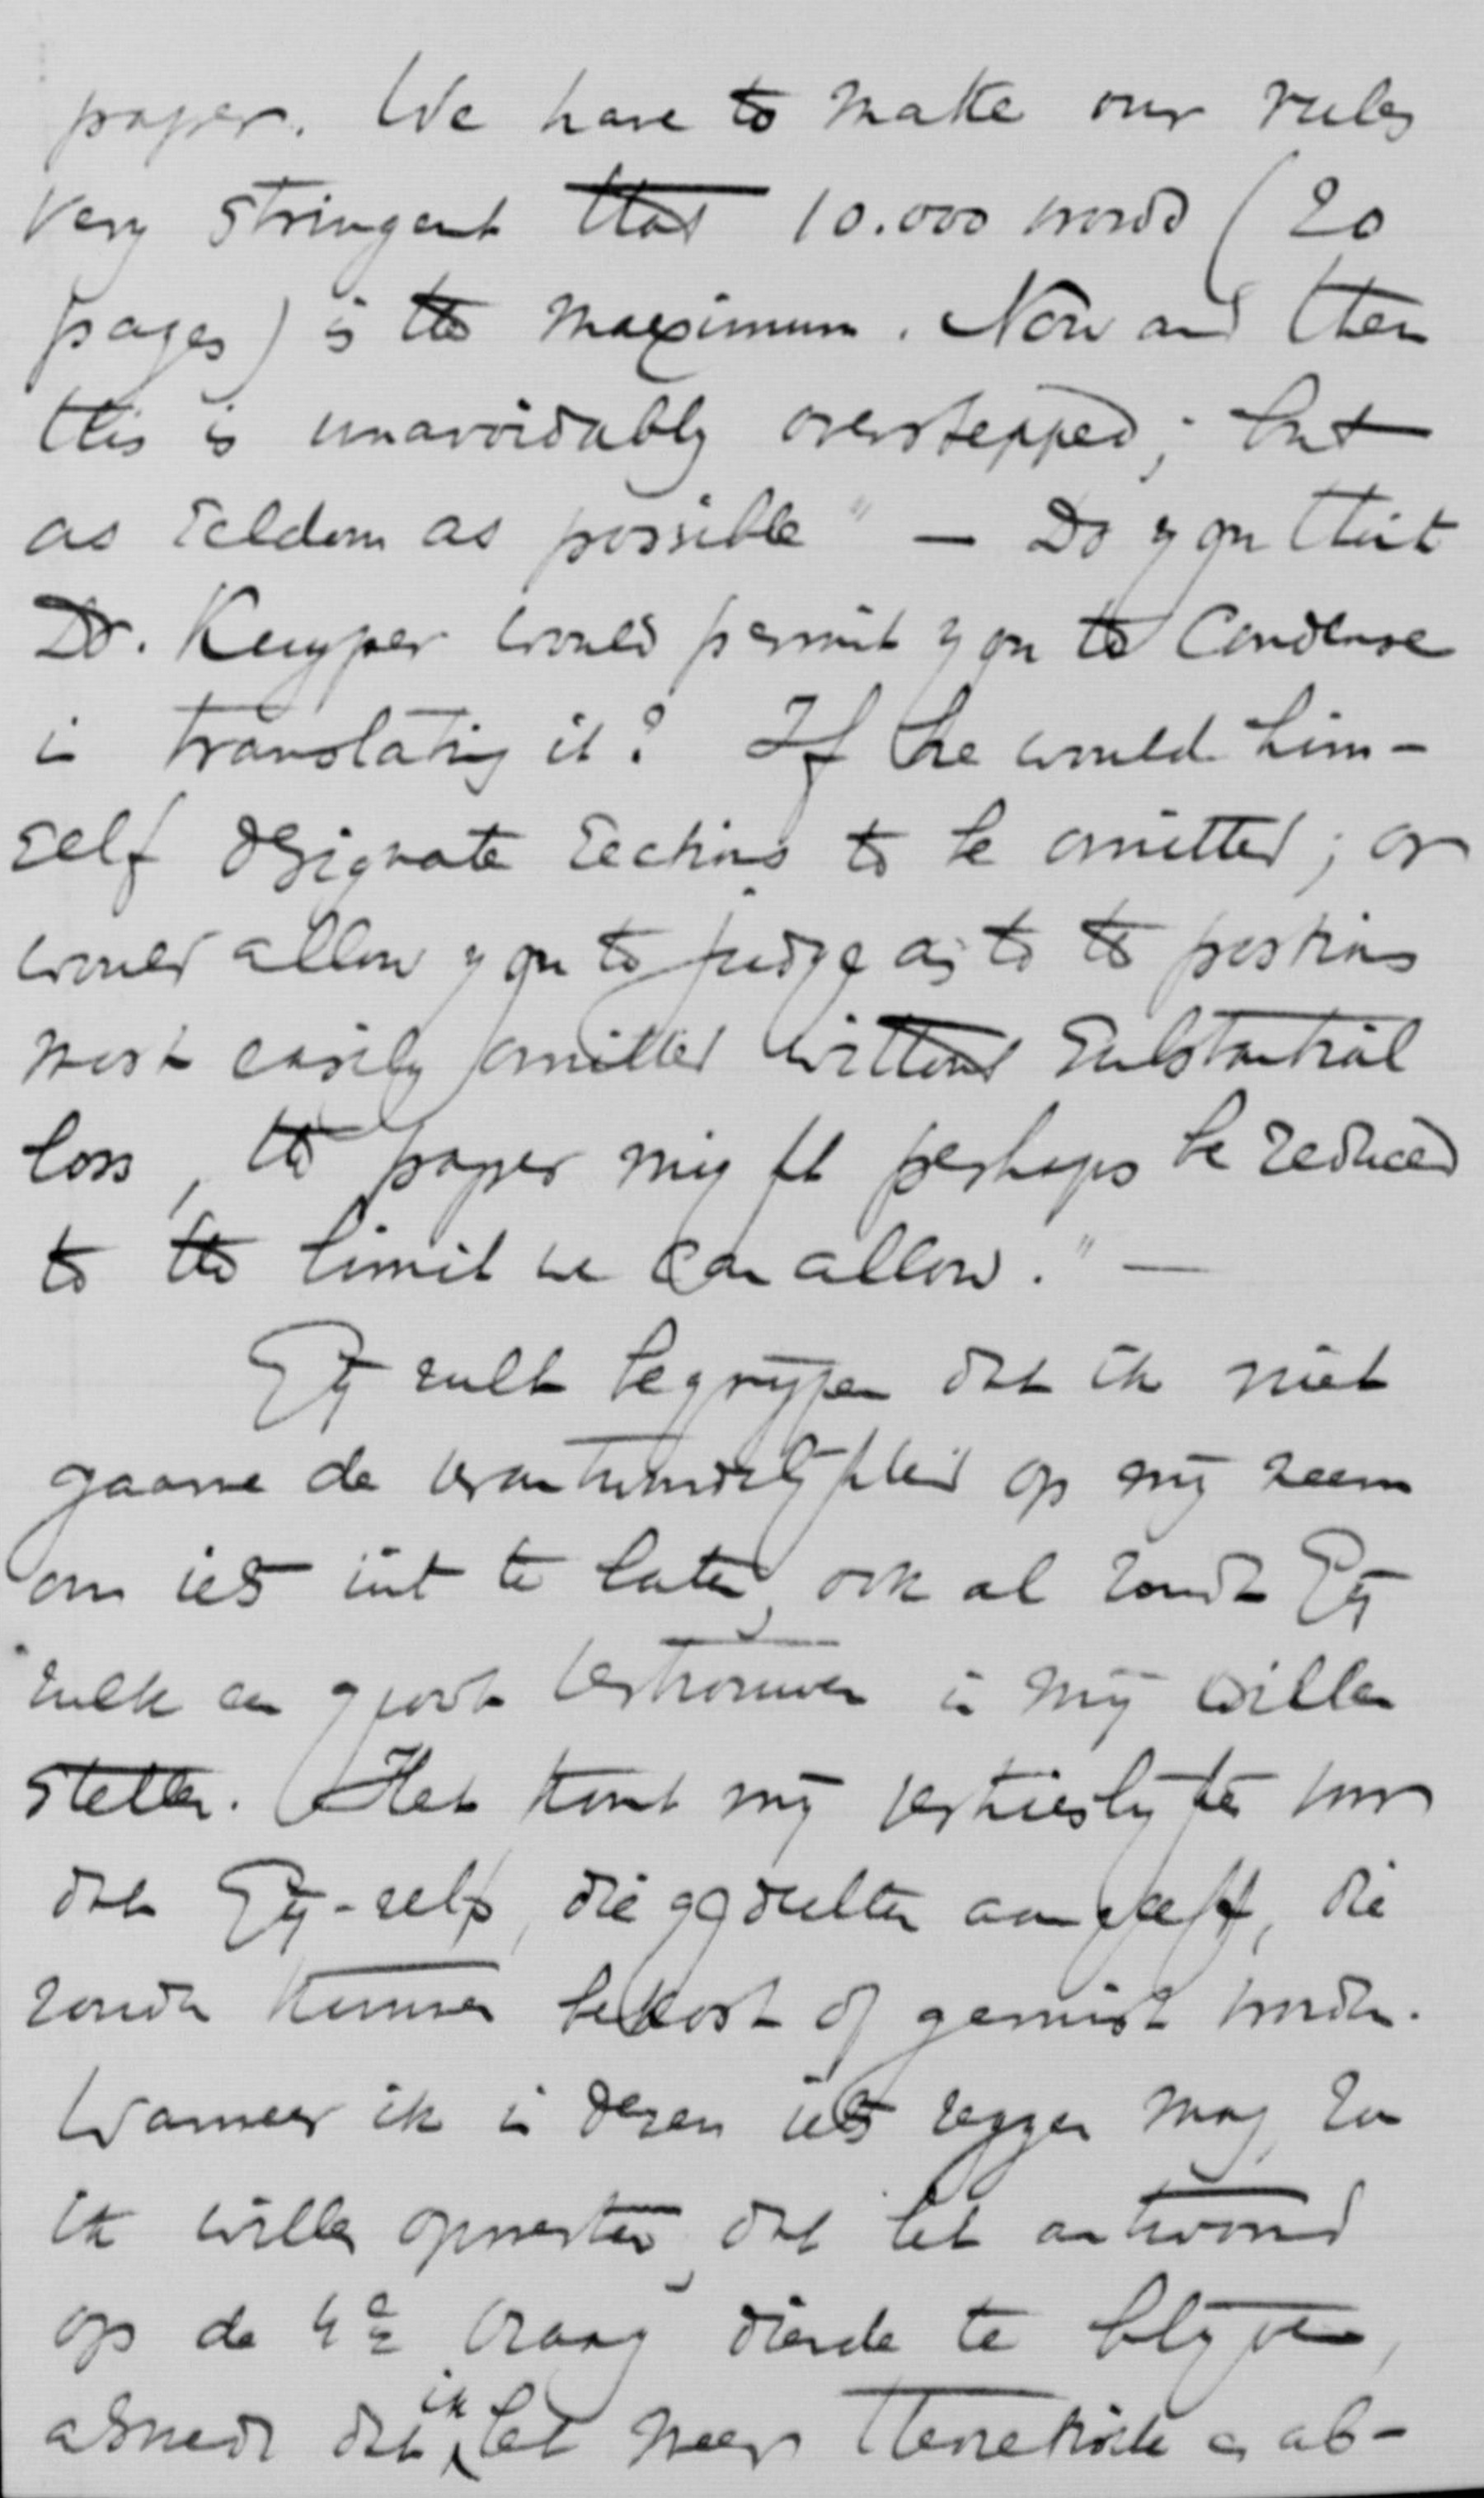 paper. We have to make our rules
very stringent that 10.000 words (20
pages) is the maximum. Now and then
this is unavoidably overstepped; but
as seldom as possible" — Do you think
Dr. Kuyper would permit you to condense
in translating it? If he would him-
self designate sections to be omitted; or
would allow you to judge as to the portions
most easily omitted without substantial
loss, the paper might perhaps be reduced
to the limit we can allow." —
Gij zult begrijpen dat ik niet
gaarne de verantwoordelijkheid op mij neem
om iets uit te laten, ook al zoudt Gij
zulk een groot vertrouwen in mij willen
stellen. Het komt mij verkieslijker voor
dat Gij-zelf, die gedeelten aangeeft, die
zouden kunnen bekort of gemist worden.
Wanneer ik in dezen iets zeggen mag, zou
ik willen opmerken, dat het antwoord
op de 4e vraag diende te blijven,
alsmede dat ik het meer theoretische en ab-